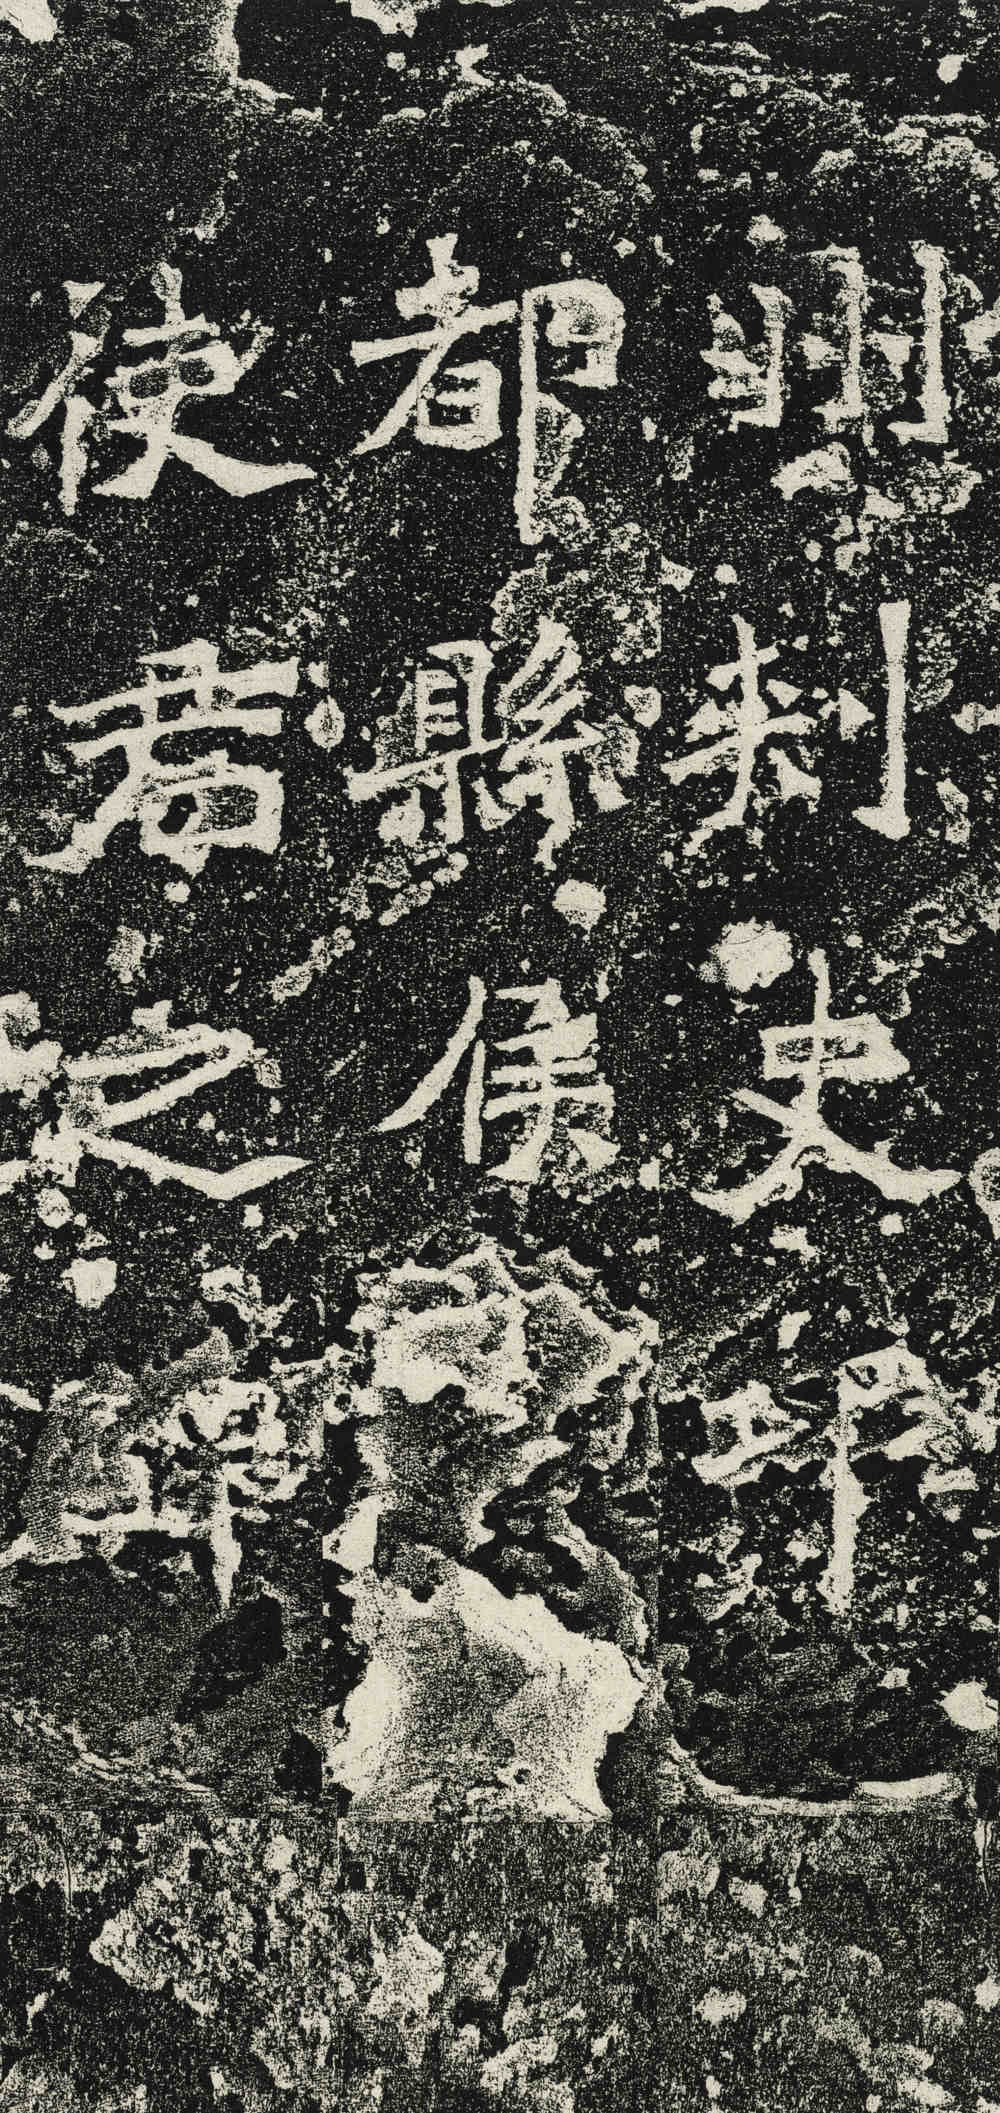 州刺史邛
都縣侯
使君之碑